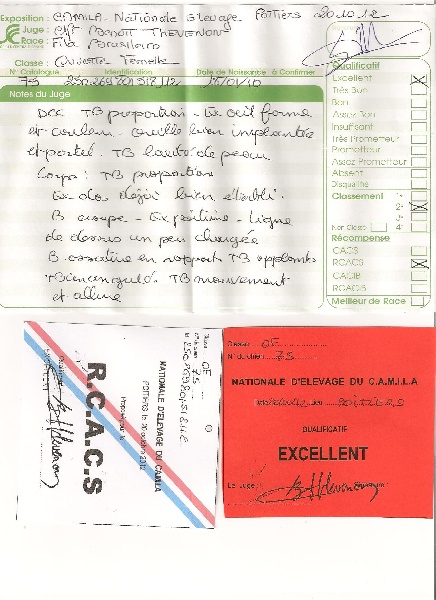 Exposition : CAMILA Nationale Elevage POITIERS 20.10.12
Juge : Benoit THEVENON
Race : Fila Brasileiro
Classe : Ouverte Femelle
N° Catalogue Identification Date de Naissance à Confirmer
75
Notes du Juge
Dcc TB proportion - Ex oeil forme
et couleur - oreille bien implantée
et portée TB
de peau
Corps : TB proportion
Ex dos déjà bien établi.
B croupe - Ex poitrine - ligne
de dessus un peu chargée
B ossature en rapport TB applombs
TB angulé. TB mouvement
et allure
Qualificatif
Excellent
Très Bon
Bon
Assez Bon
Insuffisant
Très Prometteur
Prometteur
Assez Prometteur
Absent
Disqualifié
Classement 1e
2e
3e
Non Classé 4e
Récompense
CACS
RCACS
CACIB
RCACIB
Meilleur de Race
Classe OF
N° du chien 75
NATIONALE D'ELEVAGE DU CAMILA
POITIERS, le 20 octobre 2012
R.C.A.C.S
Classe : OF
N° du chien : 75
NATIONALE D'ELEVAGE DU C.A.M.I.L.A
QUALIFICATIF
EXCELLENT
Le Juge :